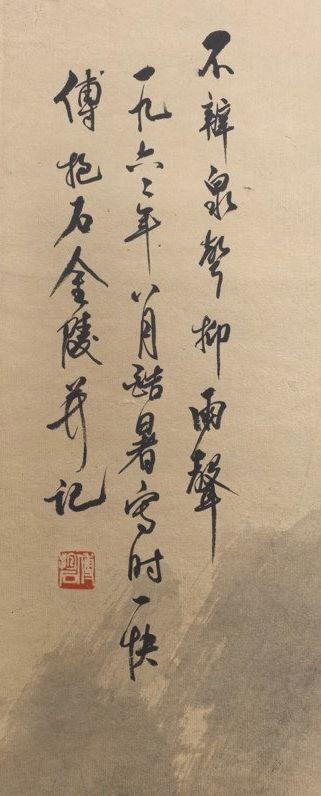 不辨泉声抑雨聲
一九六二年八月酷暑写时一快
傅抱石金陵并记